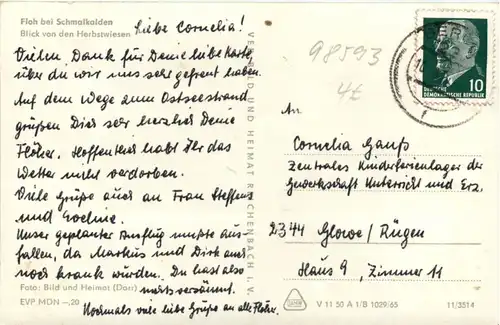 Floh bei Schmalkalden
Blick von den Herbstwiesen
Liebe Cornelia!
Vielen Dank für Deine liebe Karte,
über die wir uns sehr gefreut haben.
Auf dem Wege zum Ostseestrand
grüßen Dich sehr herzlich Deine
Flöher. Hoffentlich habt Ihr das
Wetter nicht verdorben.
Viele Grüße auch an Frau Steffens
und Eveline.
Unser geplanter Ausflug mußte aus-
fallen, da Markus und Dirk auch
noch krank wurden. Du hast also
nichts versäumt.
Nochmals viele liebe Grüße an alle Flöher.
Foto: Bild und Heimat (Darr)
EVP MDN –,20
VERLAG BILD UND HEIMAT REICHENBACH i. V.
98593
4€
DEUTSCHE
DEMOKRATISCHE REPUBLIK
10
An
Cornelia Ganß
Zentrales Kinderferienlager der
Gewerkschaft Unterricht und Erz.
2344 Glowe/Rügen
Haus 9, Zimmer 11
V 11 50 A 1/B 1029/65
11/3514